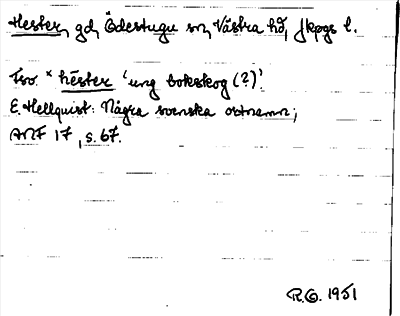 Hester, gd, Ödestugu sn, Västra hd, Jkpgs l.
Fsv. * hēster 'ung bokskog (?)'.
E. Hellquist: Några svenska ortnamn;
ANF 17, s. 67.
R.G. 1951